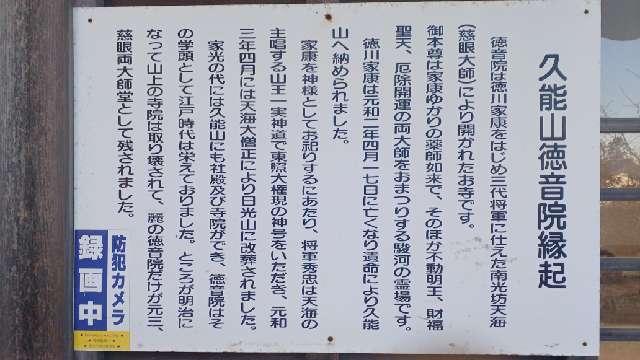 久能山徳音院縁起
徳音院は徳川家康をはじめ三代将軍に仕えた南光坊天海
(慈眼大師)により開かれたお寺です。
御本尊は家康ゆかりの薬師如来で、そのほか不動明王、財福
聖天、厄除開運の両大師をおまつりする駿河の霊場です。
徳川家康は元和二年四月一七日に亡くなり遺命により久能
山へ納められました。
家康を神様としてお祀りするにあたり、将軍秀忠は天海の
主唱する山王一実神道で東照大権現の神号をいただき、元和
三年四月には天海大僧正により日光山に改葬されました。
家光の代には久能山にも社殿及び寺院ができ、徳音院はそ
の学頭として江戸時代は栄えておりました。ところが明治に
なって山上の寺院は取り壊されて、麓の徳音院だけが元三、
慈眼両大師堂として残されました。
防犯カメラ
録画中